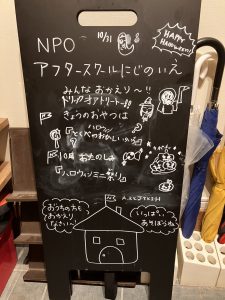 10/31
HAPPY Halloween!
NPO
アフタースクールにじのいえ
みんなおかえり〜!!
トリックオアトリート
きょうのおやつは
ハロウィン
とくべつの
10月 おたのしみ
『ハロウィンミニ祭り』
おうちの方も
おかえり
なさい
いっぱい
あそぼうね